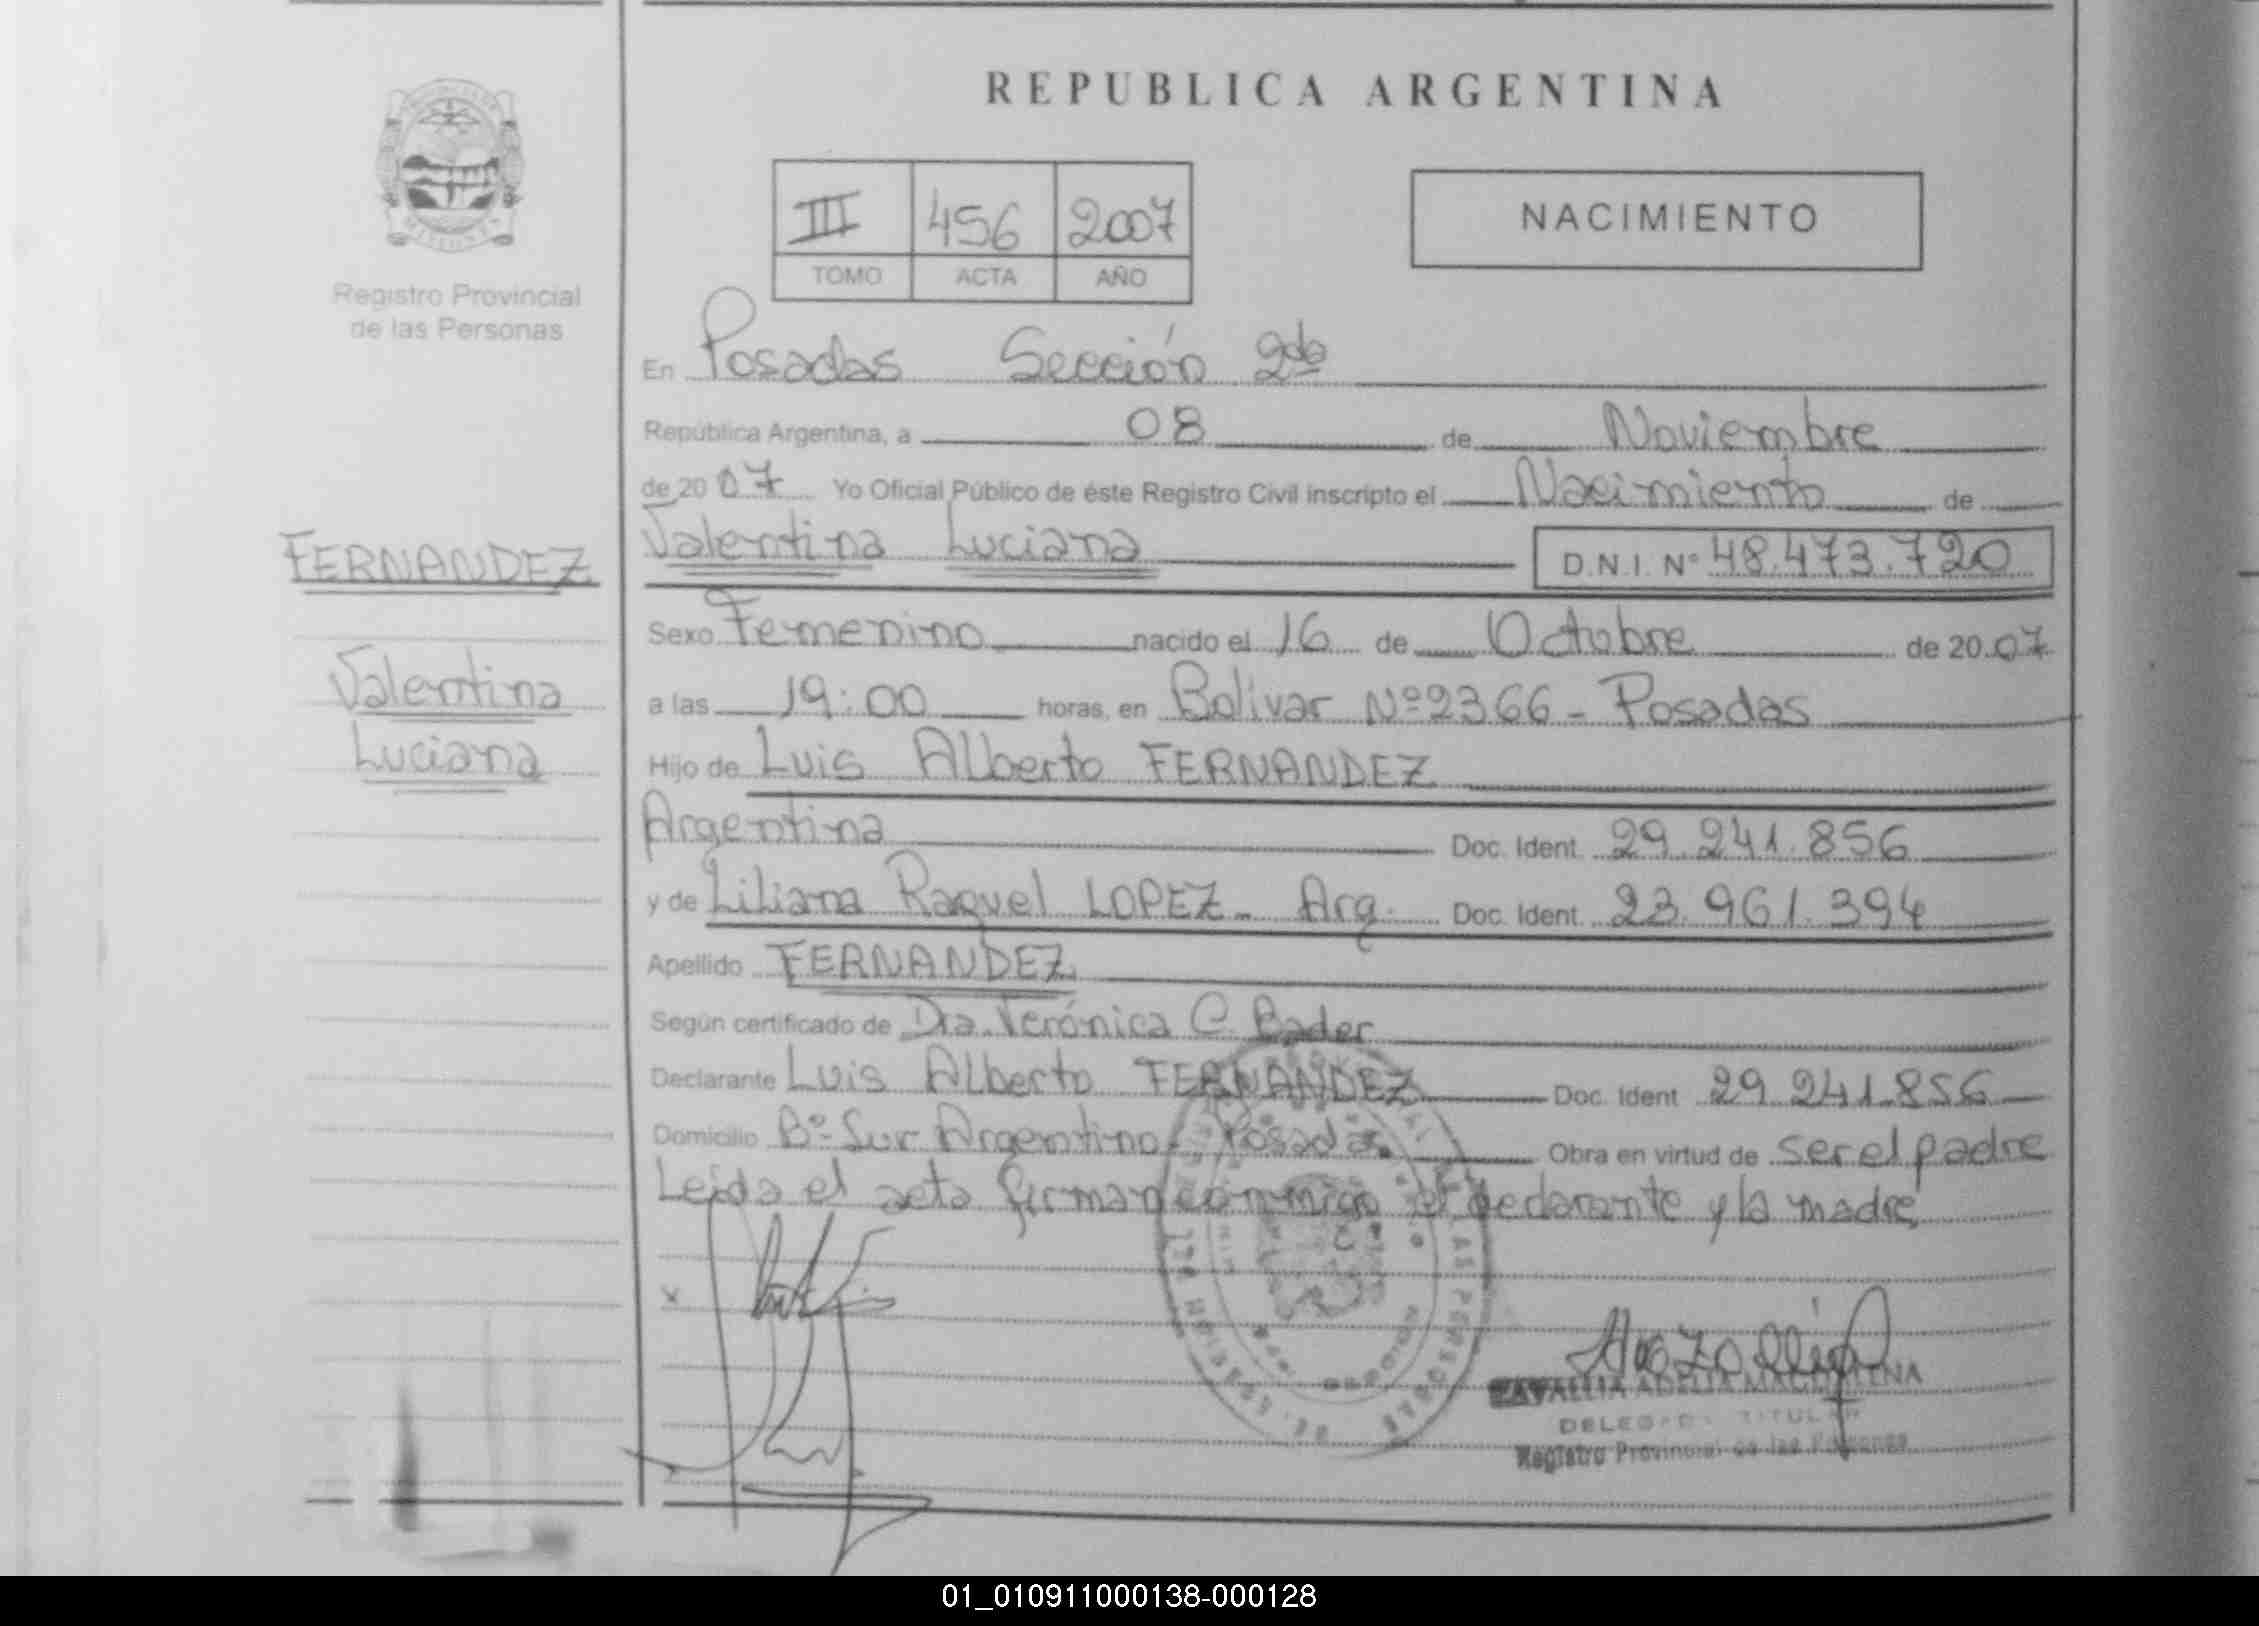 REPUBLICA ARGENTINA
MISIONES
Registro Provincial
de las Personas
III 456 2007
TOMO ACTA AÑO
NACIMIENTO
En Posadas Sección 2da
República Argentina, a 08 de Noviembre
de 2007 Yo Oficial Público de éste Registro Civil inscripto el Nacimiento de
FERNANDEZ
Valentina
Luciana
Valentina Luciana D.N.I. Nº 48.473.720
Sexo Femenino nacido el 16 de Octubre de 2007
a las 19:00 horas, en Bolivar Nº 2366 - Posadas
Hijo de Luis Alberto FERNANDEZ
Argentina Doc. Ident. 29.241.856
y de Liliana Raquel LOPEZ - Arg. Doc. Ident. 23.961.394
Apellido FERNANDEZ
Según certificado de Dra. Verónica C. Bader
Declarante Luis Alberto FERNANDEZ Doc. Ident 29.241.856
Domicilio Bº Sur Argentino - Posadas Obra en virtud de ser el padre
Leída el acta firman conmigo el declarante y la madre
x
ADELIA MAGDALENA
DELEGADA TITULAR
Registro Provincial de las Personas
01_010911000138-000128